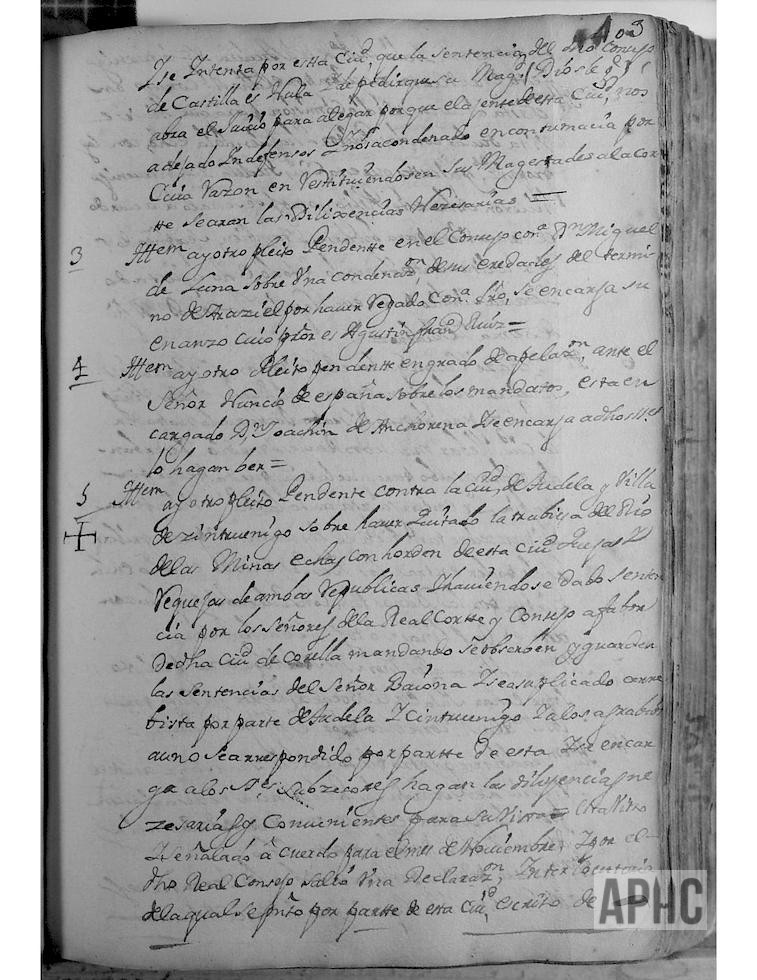 103
Y se Yntenta por esta Ciud. que la sentencia del dho Consejo
de Castilla es Nula Y de pedir que su Magd. Dios le gde.
abra el Juicio para alegar porque el asente de esta Ciud. nos
a dejado Yndefensos Y nos a condenado en contumacia por
Cuia Razon en Restituiendosen sus Magestades a la Cor
tte se aran las Dilixencias Nezesarias =
3 Ittem ay otro pleito Pendentte en el Consejo con Dn. Miguel
de Luna sobre Vna condenazon. de sus eredades del termi
no de Araziel por hauer Regado con Rio, se encarga su
enanzo cuio pror es Agustin Ruiz =
4 Ittem ay otro Pleito pendentte en grado de apelazon. ante el
Señor Nuncio de españa sobre los mandatos, esta en
cargado Dn. Joachin de Anchorena Y se encarga a dhos Sres.
lo hagan ber =
5 Ittem ay otro pleito Pendente contra la Ciud. de Tudela y Villa
de Zintruenigo sobre hauer Quitado la trabiesa del Rio
de las Minas echas con horden de esta Ciud. Quejas Y
Requejas de ambas Republicas Y hauiendose dado senten
cia por los Señores de la Real Cortte y Consejo a fabor
de dha Ciud. de Corella mandando se obserben y guarden
las sentencias del Señor Baiona Y se a suplicado en re
bista por parte de Tudela Y Cintruenigo Y a los agrabios
a uno se a rrespondido por partte de esta Y se encar
ga a los Sres. Subzesores hagan las dilijencias ne
zesarias y Conuinientes para su Vista = esta Visto
Y señalado acuerdo para el mes de Nouiembre, Y por el
dho Real Consejo salio Vna Declarazon. Ynterlocutoria
de la qual se pnto por partte de esta Ciud. escrito de
APHC